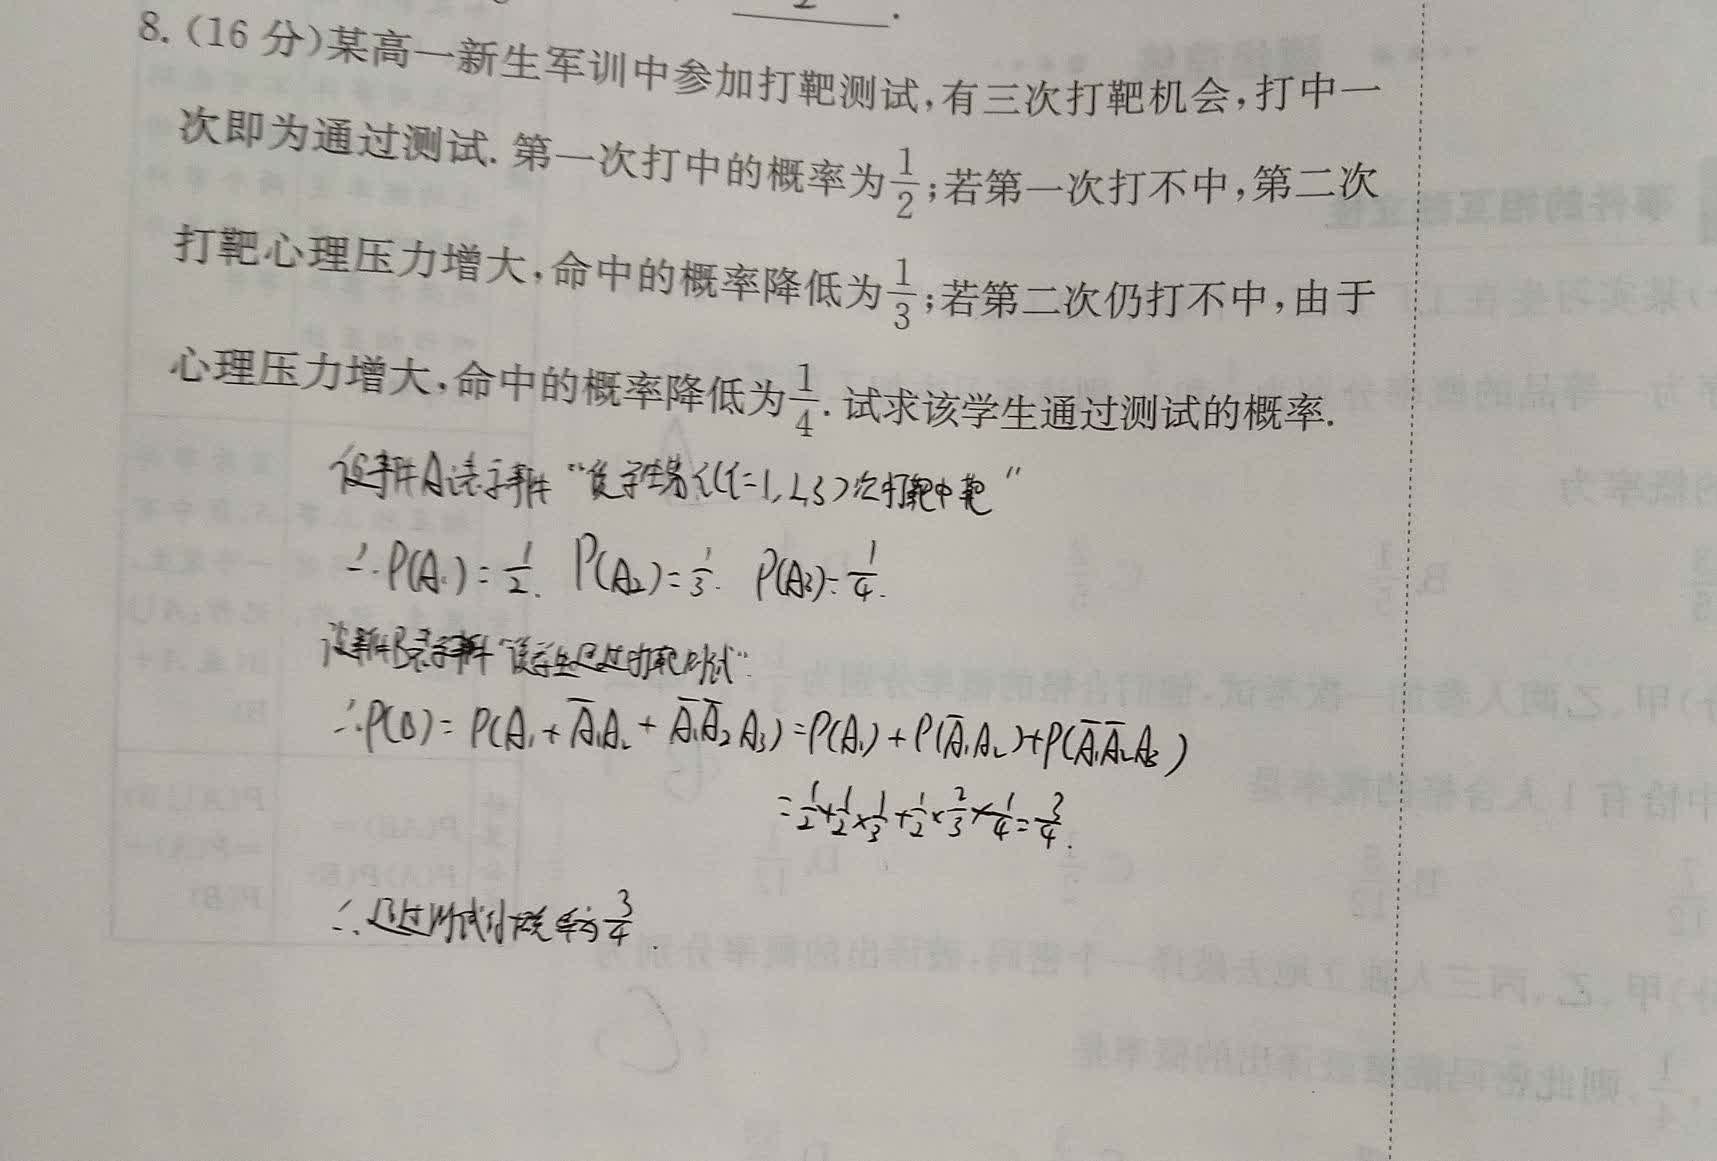 8. (16 分)某高一新生军训中参加打靶测试,有三次打靶机会,打中一
次即为通过测试. 第一次打中的概率为1/2;若第一次打不中,第二次
打靶心理压力增大,命中的概率降低为1/3;若第二次仍打不中,由于
心理压力增大,命中的概率降低为1/4. 试求该学生通过测试的概率.
设事件Ai表示事件“该学生第i(i=1,2,3)次打靶中靶”
∴P(A₁)=1/2. P(A₂)=1/3. P(A₃)=1/4.
设事件B表示事件“该学生通过打靶测试”
∴P(B)=P(A₁+A̅₁A₂+A̅₁A̅₂A₃)=P(A₁)+P(A̅₁A₂)+P(A̅₁A̅₂A₃)
=1/2+1/2×1/3+1/2×2/3×1/4=3/4.
∴通过测试的概率为3/4.